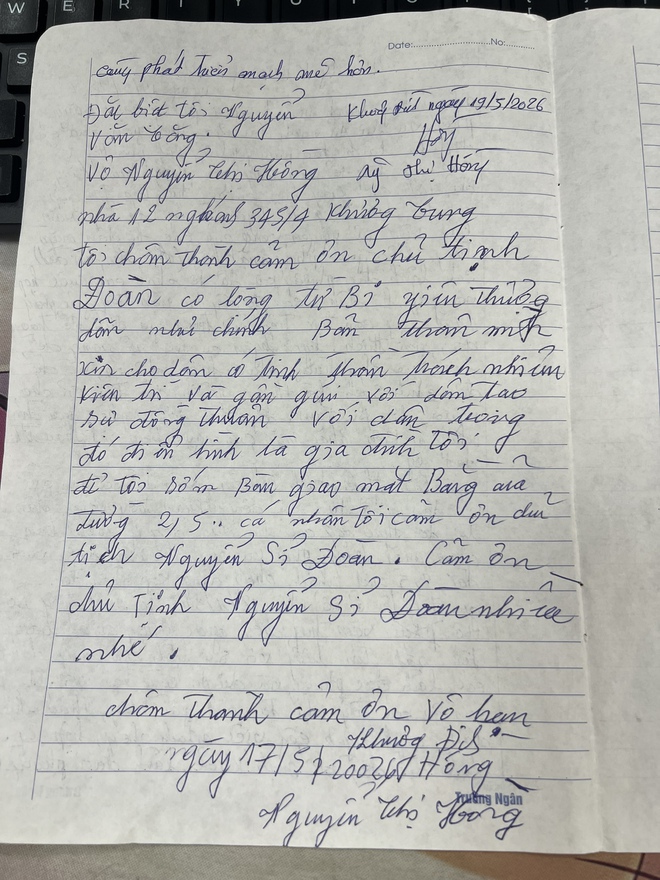 Date:..........................No:.............
càng phát triển mạnh mẽ hơn.
Đặc biệt tôi Nguyễn
Khương ngày 19/5/2026
Văn Căng.
Hồng
Vợ Nguyễn Thị Hồng
Thị Hồng
nhà 12 nghách 345/4 Khương Trung
tôi chân thành cảm ơn chủ tịnh
Đoàn có lòng từ Bi yêu thương
dân như chính Bản thân mình
xin cho dân có tinh thần trách nhiệm
kiên trì và gần gũi với dân tạo
sự đồng thuận với dân trong
đó điển hình là gia đình tôi
để tôi sớm Bàn giao mặt Bằng
đường 2,5.. cá nhân tôi cảm ơn chủ
tịch Nguyễn Sĩ Đoàn. Cảm ơn
chủ Tịnh Nguyễn Sĩ Đoàn nhiều
nhé.
chân thành cảm ơn vô hạn
Khương Đình
ngày 17/5/20026 Hồng
Trường Ngân
Nguyễn Thị Hồng